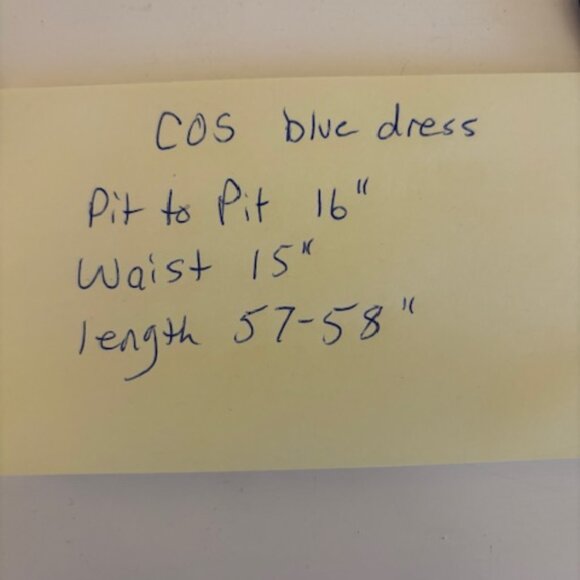 COS blue dress
Pit to Pit 16"
Waist 15"
length 57-58"